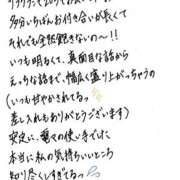 多分いちばんお付き合いが長くて
それでも全然飽きないの〜!!
いつも明るくて、真面目な話から
えっちな話まで、幅広く盛り上がっちゃうの
(いつも甘やかされてるっ
差し入れもありがとうございます)
安定に、電マの使い手でけた
本当に私の気持ちいいところ
知り尽くしすぎてるっ